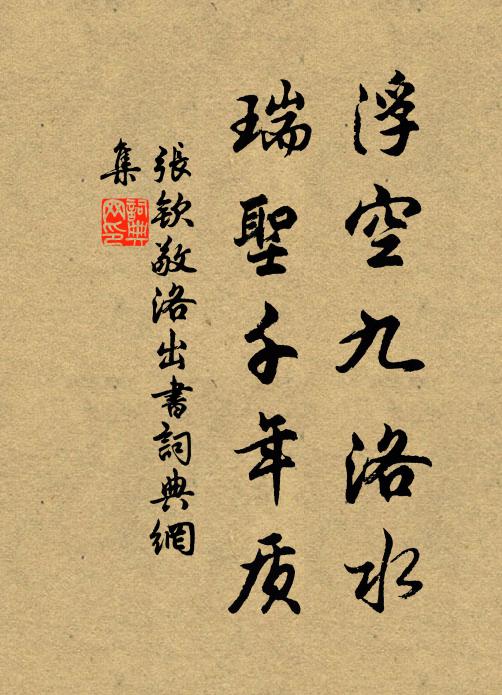 浮空九洛水
瑞聖千年质
張欽敬洛出書詞典網
集
詞典网印